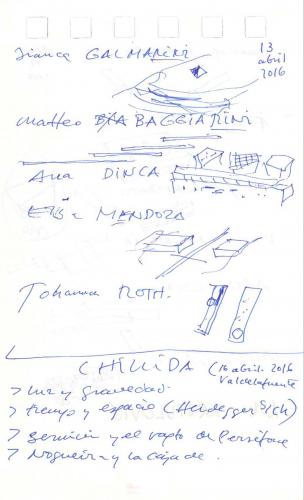 Bianca GALMARINI
13 abril 2016
Matteo BAGGIARINI
Ana DINCA
Elsa MENDOZA
Johanna ROTH.
CHILLIDA (16 abril-2016
Valdelafuente
> luz y gravedad-
> tiempo y espacio (Heidegger Sich)
> Bernini y el rapto de Perséfone
> Nogueira y la caja de.